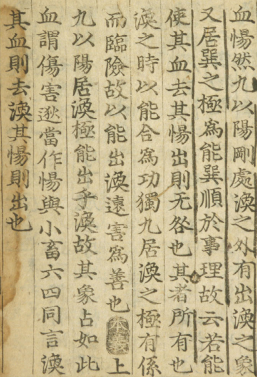 血惕然九以陽剛處渙之外有出渙之象
又居巽之極爲能巽順於事理故云若能
使其血去其惕出則无咎也其者所有也
渙之時以能合爲功獨九居渙之極有係
而臨險故以能出渙遠害爲善也本義上
九以陽居渙極能出乎渙故其象占如此
血謂傷害逖當作惕與小畜六四同言渙
其血則去渙其惕則出也